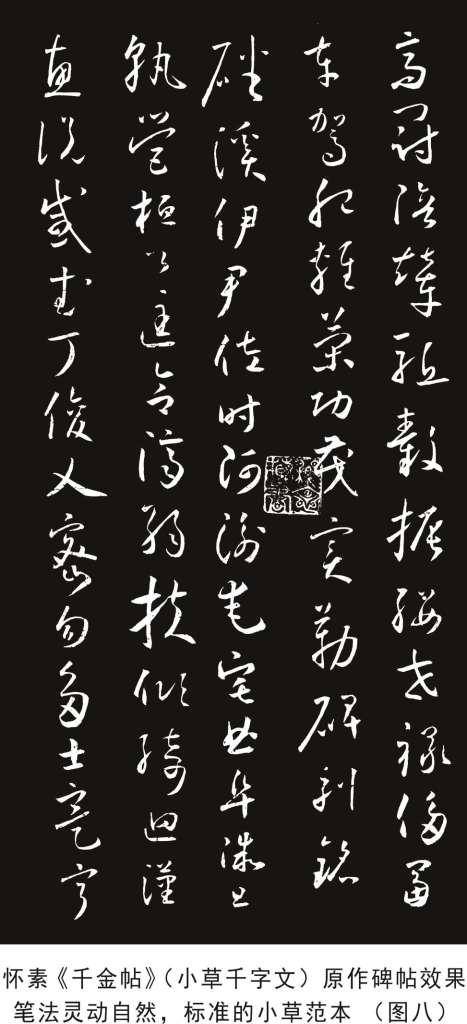 高冠陪輦驅轂振纓世祿侈富
車駕肥輕策功茂實勒碑刻銘
磻溪伊尹佐時阿衡奄宅曲阜微旦
孰營桓公匡合濟弱扶傾綺迴漢
惠說感武丁俊乂密勿多士寔寧
怀素《千金帖》（小草千字文）原作碑帖效果
笔法灵动自然，标准的小草范本 （图八）